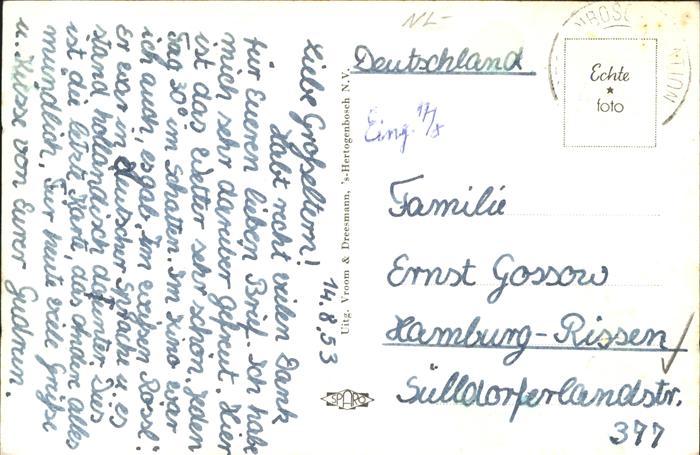 NL-
Deutschland
Echte
foto
Eing. 17/8
Familie
Ernst Gossow
Hamburg-Rissen
Sülldorferlandstr.
377
Uitg. Vroom & Dreesmann, 's-Hertogenbosch N.V.
SPARO
14.8.53
Liebe Großeltern!
Habt recht vielen Dank
für Eueren lieben Brief. Ich habe
mich sehr darüber gefreut. Hier
ist das Wetter sehr schön. Jeden
Tag 30° im Schatten. Im Kino war
ich auch, es gab „Im weißen Rössl“.
Er war in deutscher Sprache u. es
stand holländisch darunter. Dies
ist die letzte Karte, das andere alles
mündlich. Für heute viele Grüße
u. Küsse von Eurer Gudrun.